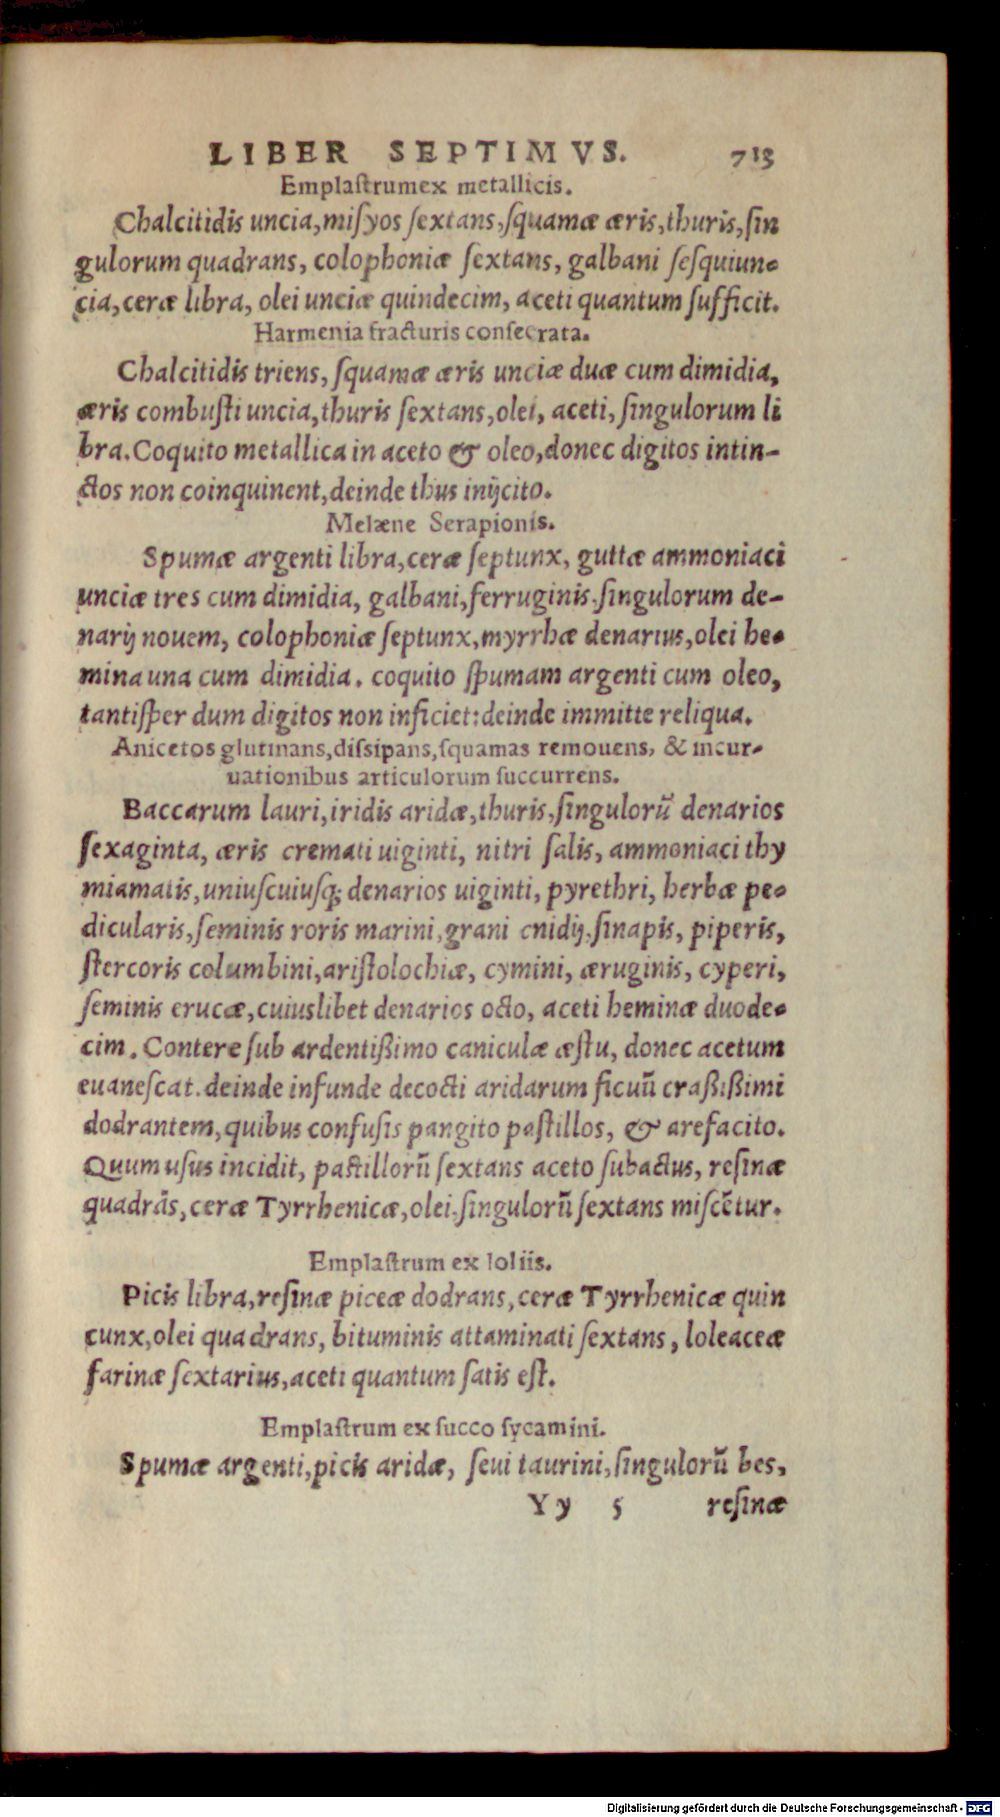 LIBER SEPTIMVS. 713
Emplaſtrumex metallicis.
Chalcitidis uncia, miſyos ſextans, ſquamæ æris, thuris, ſin
gulorum quadrans, colophoniæ ſextans, galbani ſeſquiun-
cia, ceræ libra, olei unciæ quindecim, aceti quantum ſufficit.
Harmenia fracturis conſecrata.
Chalcitidis triens, ſquamæ æris unciæ duæ cum dimidia,
æris combuſti uncia, thuris ſextans, olei, aceti, ſingulorum li
bra. Coquito metallica in aceto & oleo, donec digitos intin-
ctos non coinquinent, deinde thus inijcito.
Melæne Serapionis.
Spumæ argenti libra, ceræ ſeptunx, guttæ ammoniaci
unciæ tres cum dimidia, galbani, ferruginis, ſingulorum de-
narij nouem, colophoniæ ſeptunx, myrrhæ denarius, olei he-
mina una cum dimidia. coquito ſpumam argenti cum oleo,
tantiſper dum digitos non inficiet: deinde immitte reliqua.
Anicetos glutinans, diſsipans, ſquamas remouens, & incur-
uationibus articulorum ſuccurrens.
Baccarum lauri, iridis aridæ, thuris, ſingulorũ denarios
ſexaginta, æris cremati uiginti, nitri ſalis, ammoniaci thy
miamatis, uniuſcuiuſq; denarios uiginti, pyrethri, herbæ pe-
dicularis, ſeminis roris marini, grani cnidij, ſinapis, piperis,
ſtercoris columbini, ariſtolochiæ, cymini, æruginis, cyperi,
ſeminis erucæ, cuiuslibet denarios octo, aceti heminæ duode-
cim. Contere ſub ardentißimo caniculæ æſtu, donec acetum
euaneſcat. deinde infunde decocti aridarum ficuũ craßißimi
dodrantem, quibus confuſis pangito paſtillos, & arefacito.
Quum uſus incidit, paſtillorũ ſextans aceto ſubactus, reſinæ
quadrãs, ceræ Tyrrhenicæ, olei, ſingulorũ ſextans miſcẽtur.
Emplaſtrum ex loliis.
Picis libra, reſinæ piceæ dodrans, ceræ Tyrrhenicæ quin
cunx, olei quadrans, bituminis attaminati ſextans, loleaceæ
farinæ ſextarius, aceti quantum ſatis eſt.
Emplaſtrum ex ſucco ſycamini.
Spumæ argenti, picis aridæ, ſeui taurini, ſingulorũ bes,
Yy 5 reſinæ
Digitalisierung gefördert durch die Deutsche Forschungsgemeinschaft - DFG